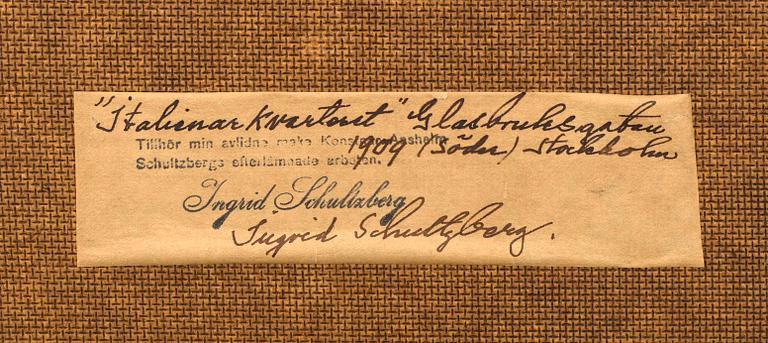 "Italienarkvarteret" Glasbruksgatan
1909 (Söder) Stockholm
Tillhör min avlidne make Konstnär Anshelm
Schultzbergs efterlämnade arbeten.
Ingrid Schultzberg
Ingrid Schultzberg.